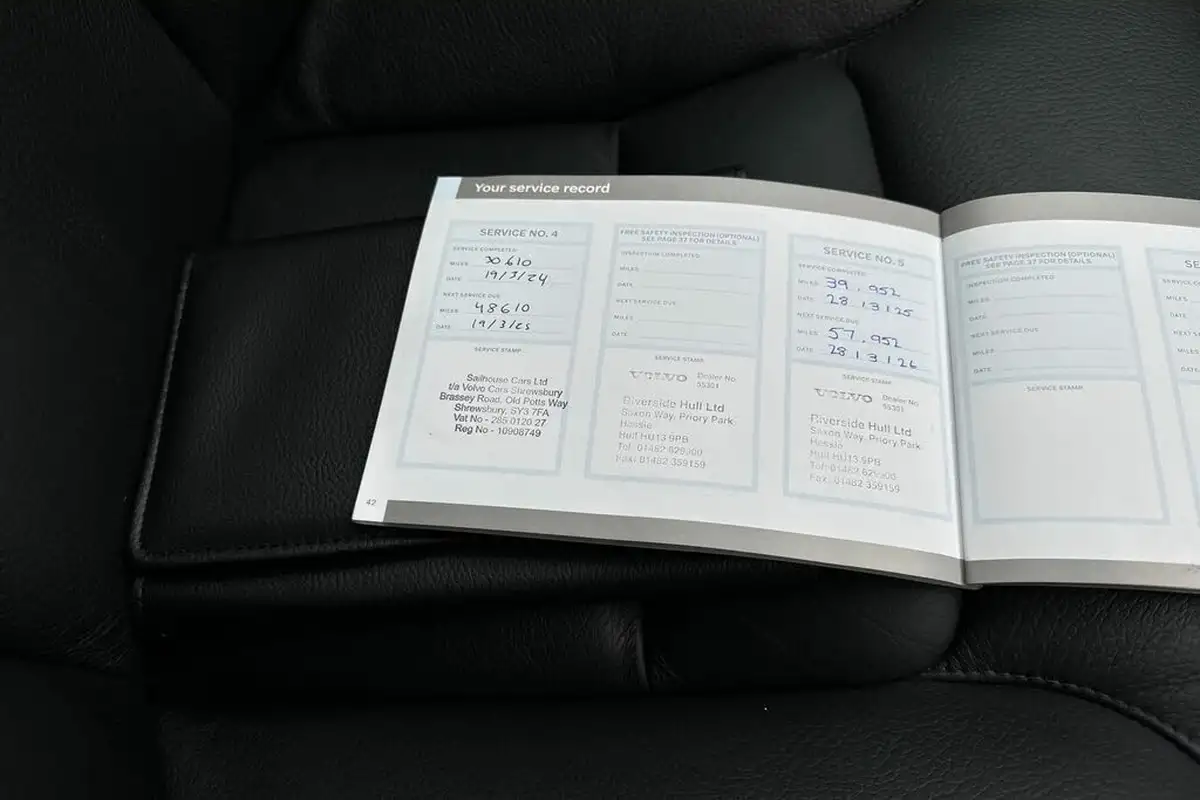 Your service record
SERVICE NO. 4
SERVICE COMPLETED
MILES 30610
DATE 19/3/24
NEXT SERVICE DUE
MILES 48610
DATE 19/3/25
SERVICE STAMP
Sailhouse Cars Ltd
t/a Volvo Cars Shrewsbury
Brassey Road, Old Potts Way
Shrewsbury, SY3 7FA
Vat No - 285 0120 27
Reg No - 10908749
42
FREE SAFETY INSPECTION (OPTIONAL)
SEE PAGE 37 FOR DETAILS
INSPECTION COMPLETED
MILES
DATE
NEXT SERVICE DUE
MILES
DATE
SERVICE STAMP
VOLVO Dealer No
55301
Riverside Hull Ltd
Saxon Way, Priory Park
Hessle
Hull HU13 9PB
Tel: 01482 629300
Fax: 01482 359159
SERVICE NO. 5
SERVICE COMPLETED
MILES 39,952
DATE 28/3/25
NEXT SERVICE DUE
MILES 57,952
DATE 28/3/26
SERVICE STAMP
VOLVO Dealer No
55301
Riverside Hull Ltd
Saxon Way, Priory Park
Hessle
Hull HU13 9PB
Tel: 01482 629300
Fax: 01482 359159
FREE SAFETY INSPECTION (OPTIONAL)
SEE PAGE 37 FOR DETAILS
INSPECTION COMPLETED
MILES
DATE
NEXT SERVICE DUE
MILES
DATE
SERVICE STAMP
SE
SERVICE COM
MILES
DATE
NEXT SER
MILES
DATE